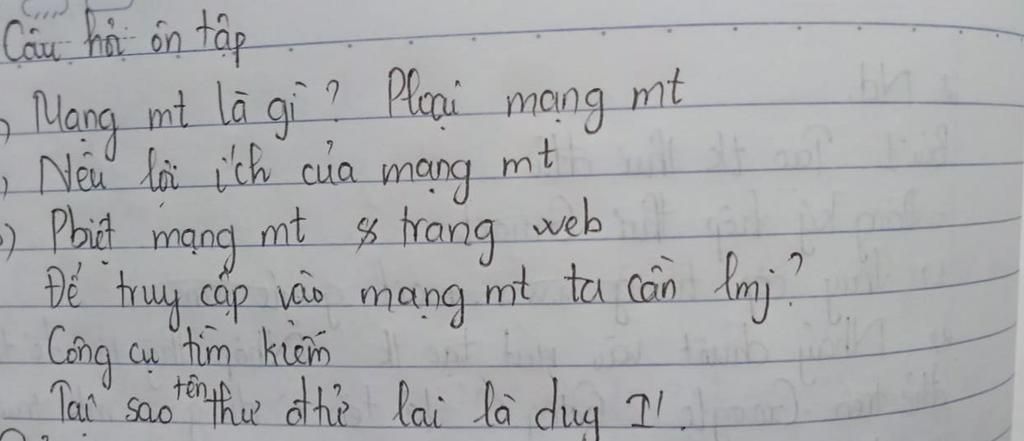 Câu hỏi ôn tập
) Mạng mt là gì? Ploại mạng mt
) Nêu lợi ích của mạng mt
) Pbiệt mạng mt & trang web
Để truy cập vào mạng mt ta cần lmj?
Công cụ tìm kiếm
Tại sao tên thư đtử lại là duy I!